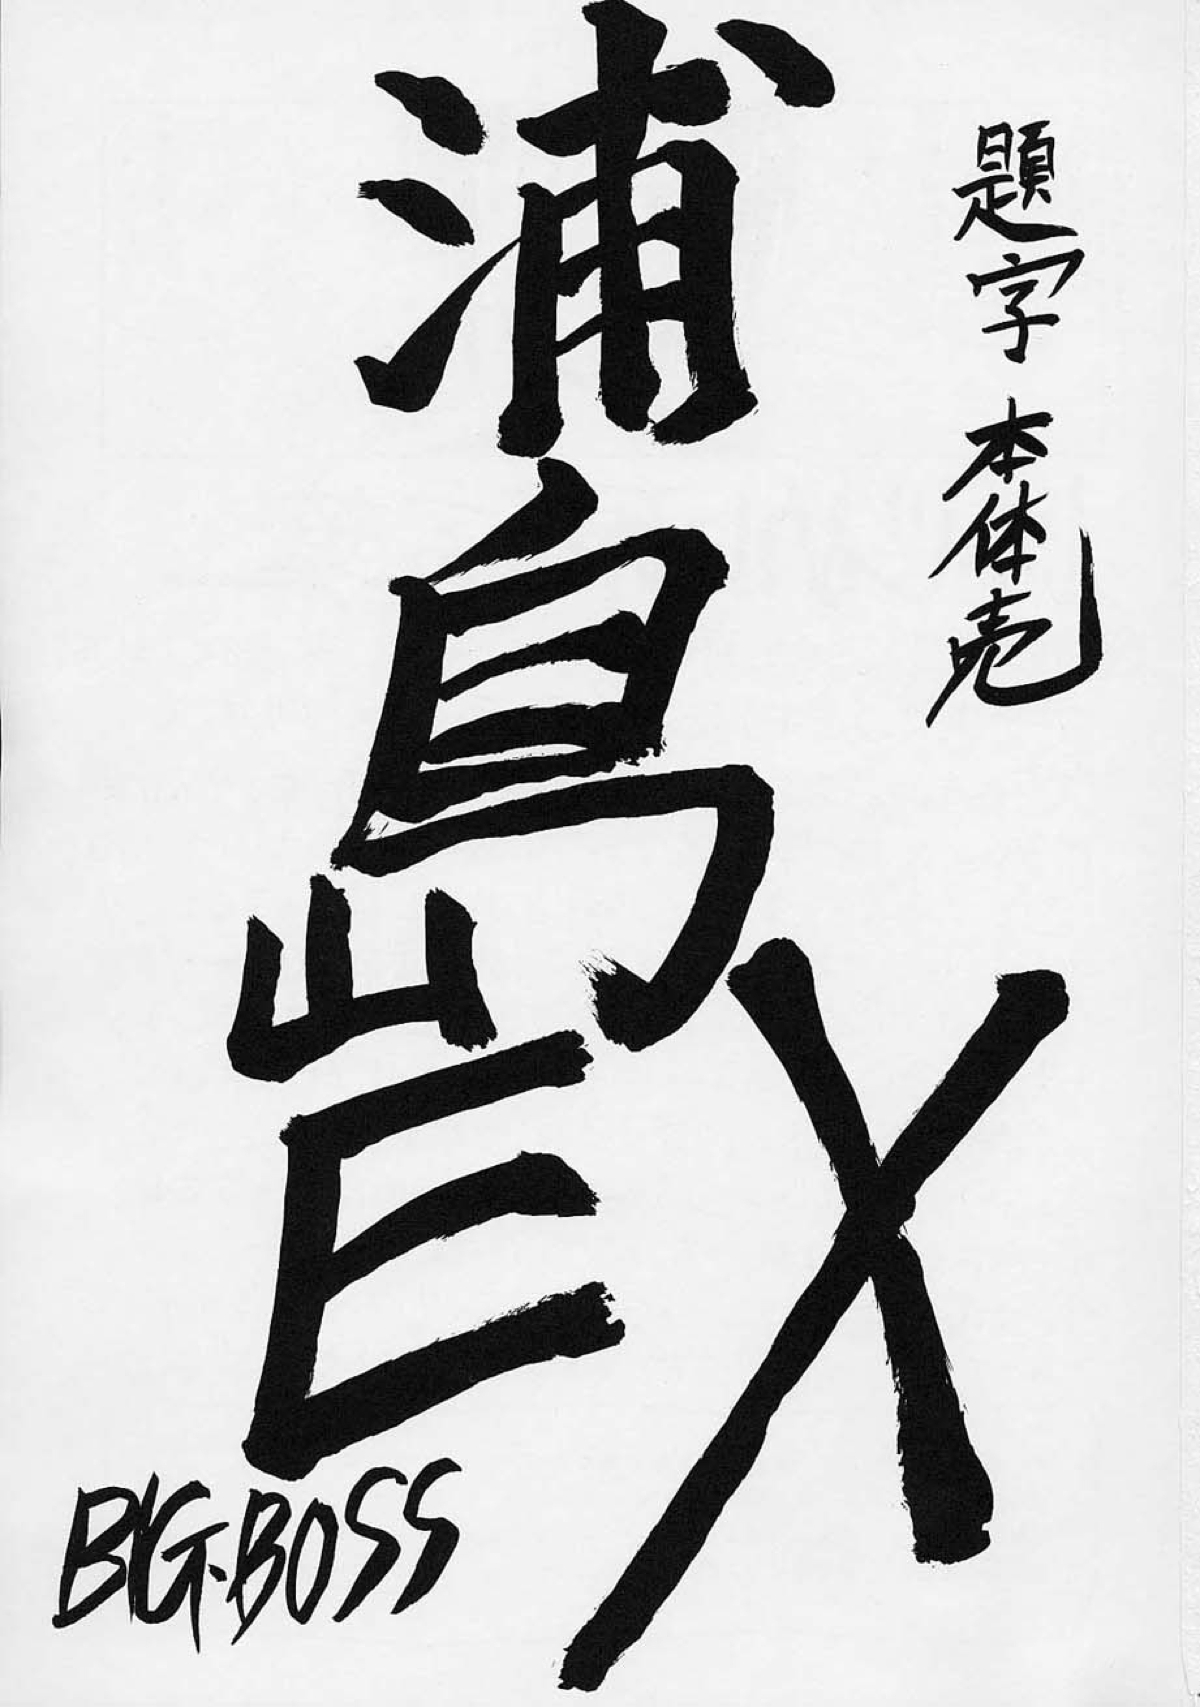 題字 本体売
浦島
EX
BIG-BOSS